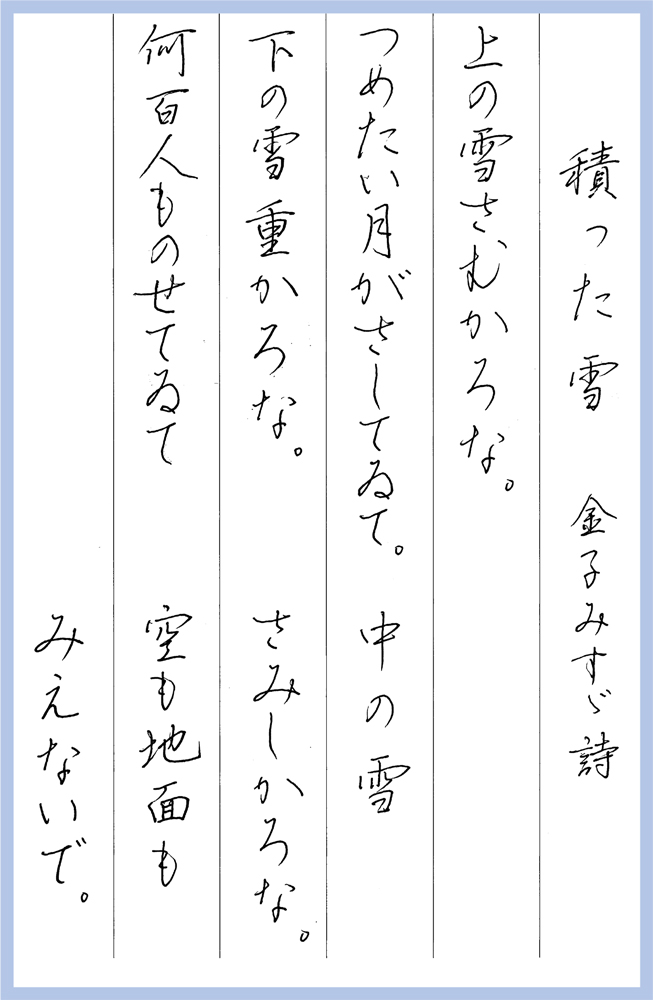 積った雪　金子みすゞ詩
上の雪さむかろな。
つめたい月がさしてゐて。
下の雪重かろな。
何百人ものせてゐて
中の雪
さみしかろな。
空も地面も
みえないで。